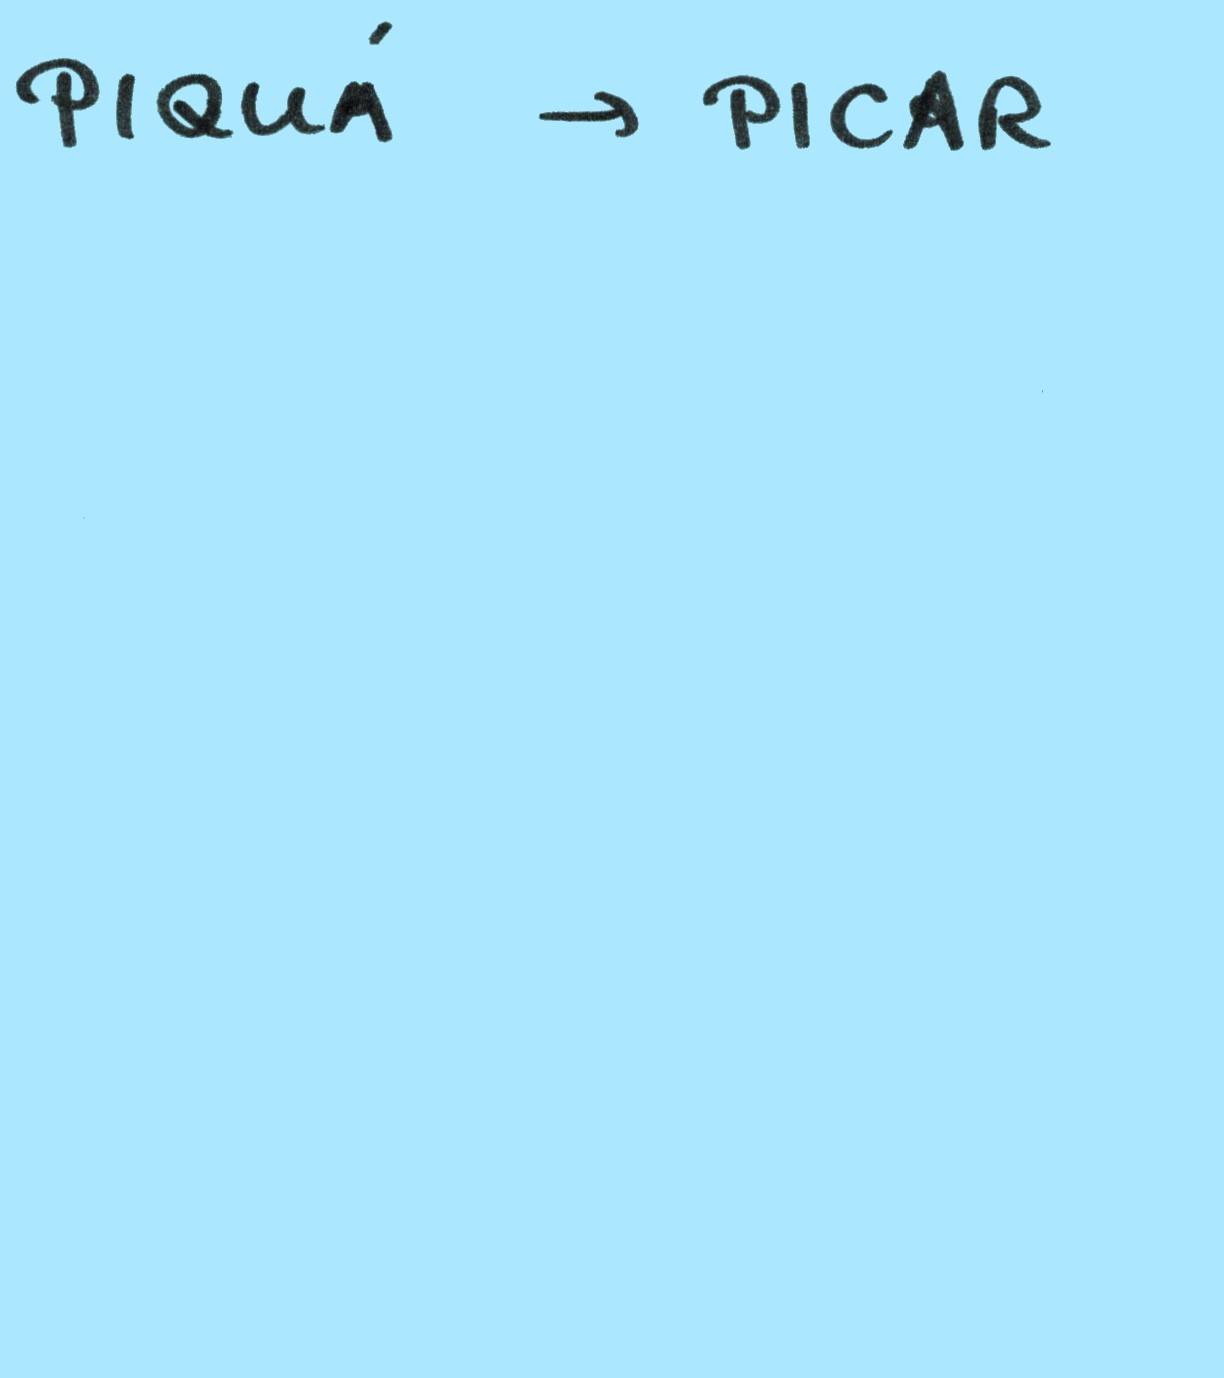 PIQUÁ → PICAR